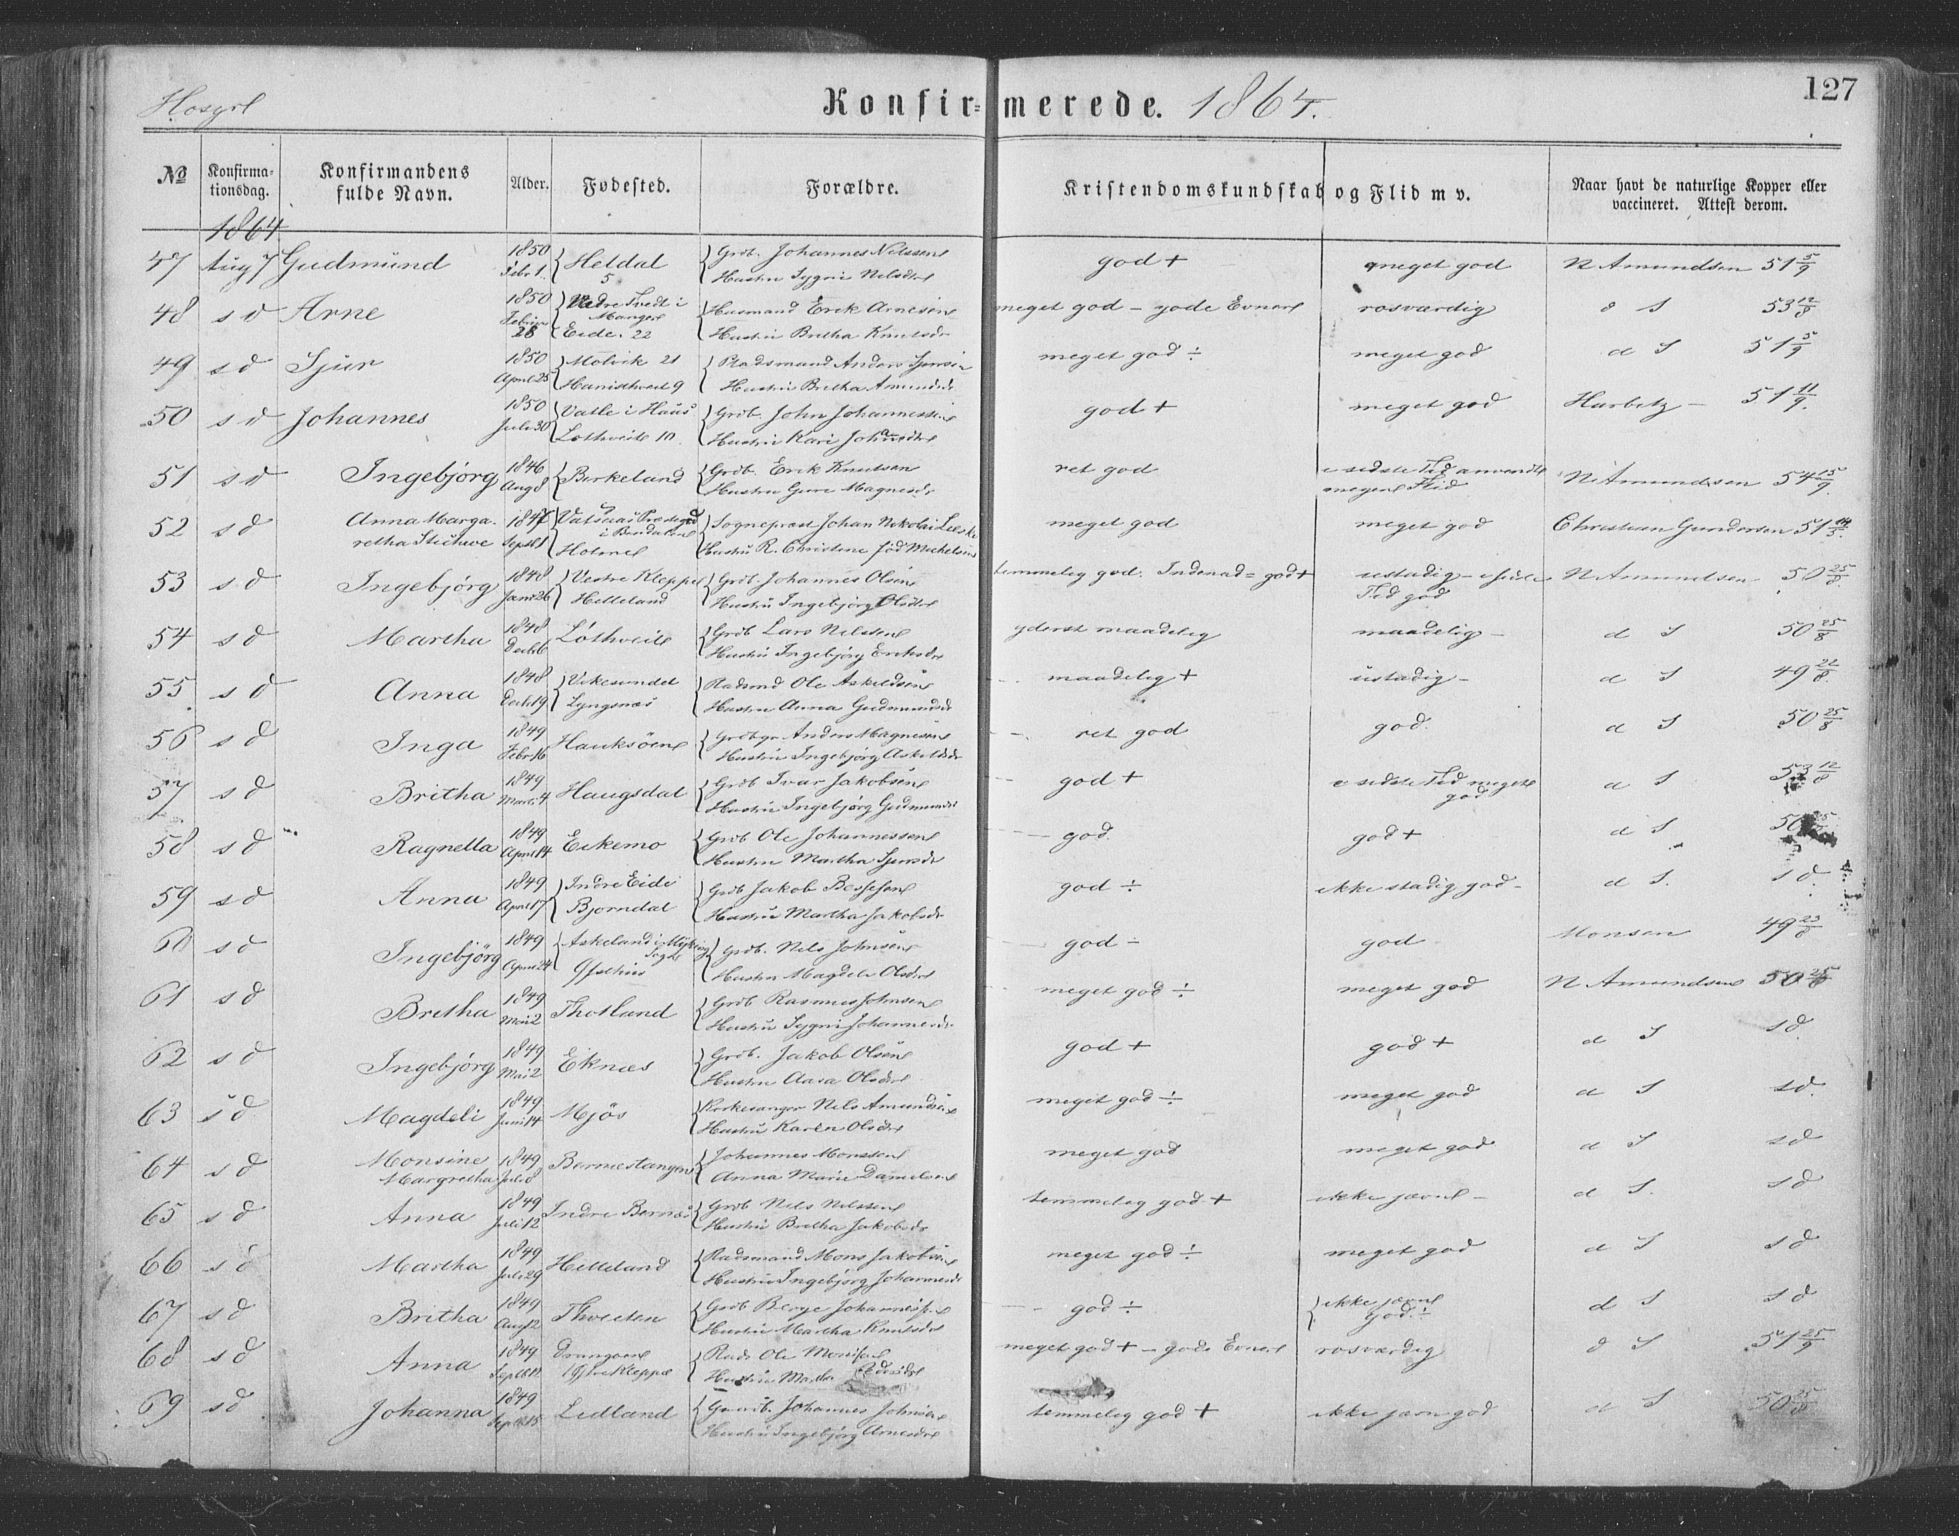 Hosgrl
Konfirmerede. 1864.
127
No
Konfirmationsdag.
Konfirmandens fulde Navn.
Alder.
Fødested.
Forældre.
Kristendomskundskab og Flid m v.
Naar havt de naturlige Kopper eller vaccineret. Attest derom.
1864
47 Aug 7 Gudmund 1850 Febr 1. Heldal 5 Grdb. Johannes Nilssen Hustru Sygni Nelsdr god + meget god N Amundsen 51 5/9
48 s d Arne 1850 Februar 28 Nedre Tvedt i Manger Eide. 22 Husmand Erik Arnesen Hustru Britha Knutsdr meget god – gode Evner rosværdig d S 53 12/8
49 s d Sjur 1850 April 25 Molvik 21 9 Radsmand Anders Sjursen Hustru Britha Amundsdr meget god ÷ meget god d S 51 5/9
50 s d Johannes 1850 Juli 30 Vatle i Haus Løthveit 10. Grdb. John Johannessen Hustru Kari Johansdr god + meget god Harbitz – 51 11/9.
51 s d Ingebjørg 1846 Aug 8 Birkeland Grdb. Erik Knutsen Hustru Guro Magnesdr ret god i sidste Tid anvendt megen Flid N Amundsen 54 15/9.
52 s d Anna Margaretha 1847 Sept 1 Præstegd i Holme Sogneprest Johan Nikolai Hustru R. Christine fød Michelsen meget god meget god Christian Gundersen 51 14/5.
53 s d Ingebjørg 1848 Janr 26 Vestre Kleppe Helleland Grdb. Johannes Olsen Hustru Ingebjørg Olsdr temmelig god. Indenad = god + ustadig – i sidste Tid god N Amundsen 50 25/8.
54 s d Martha 1848 Decbr 6 Løthveit Grdb Lars Nilssen Hustru Ingebjørg Eriksdr yderst maadelig maadelig – d S 50 25/8
55 s d Anna 1848 Decbr 19 Vikesundet Lyngsnæs Radsmd Ole Askeldsen Hustru Anna Gudmundsdr maadelig + ustadig – d S 49 22/8.
56 s d Inga 1849 Febr 16 Hauksøen Grdbgr Anders Magnesen Hustru Ingebjørg Askeldsdr ret god god. d S 50 25/8
57 s d Britha 1849 Marts 4 Haugsdal Grdb Ivar Jakobsen Hustru Ingebjørg Gudmundsdr god + i sidste Tid meget god d S 53 12/8
58 s d Ragnella 1849 April 14 Eikemo Grdb Ole Johannessen Hustru Martha Sjursdr god god + d S 50 25
59 s d Anna 1849 April 17 Indre Eide Bjørndal Grdb Jakob Hustru Martha Jakobsdr god ÷ ikke stadig god – d S. s d
60 s d Ingebjørg 1849 April 24 Askeland i Grdb. Nils Johnsen Hustru Magdele Olsdr god – god Monsen 49 23/8
61 s d Britha 1849 Mai 2 Thotland Grdb Rasmus Johnsen Hustru Sygni Johannesdr meget god ÷ meget god N Amundsen 50 25/8
62 s d Ingebjørg 1849 Mai 2 Eknæs Grdb. Jakob Olsen Hustru Aasa Olsdr god + god + d S s d
63 s d Magdeli 1849 Juni 14 Mjøs Kirkesanger Nils Amundsen Hustru Karen Olsdr meget god ÷ meget god d S s d.
64 s d Monsine Margretha 1849 Juli 8 Bernestangen Johannes Monssen Anna Marie Danielsen meget god meget god d S s d
65 s d Anna 1849 Juli 12 Indre Bernæs Grdb Nils Nilssen Hustru Britha Jakobsdr temmelig god + ikke jævn – d S. s d
66 s d Martha 1849 Juli 29 Helleland Radsmand Mons Jakobsen Hustru Ingebjørg Johannesdr meget god ÷ meget god d S s d
67 s d Britha 1849 Aug 12 Thveiten Grdb Berge Johannessen Hustru Martha Knutsdr god ÷ ikke jævn god ÷ d S s d
68 s d Anna 1849 Septbr Kleppe Rads Ole Monsen Hustru Martha meget god + – gode Evner rosværdig d S 51 25/9
69 s d Johanna 1849 Septbr 15 Lidland Gaardb. Johannes Johnsen Hustru Ingebjørg Arnesdr temmelig god + ikke jævn god d S 50 25/8